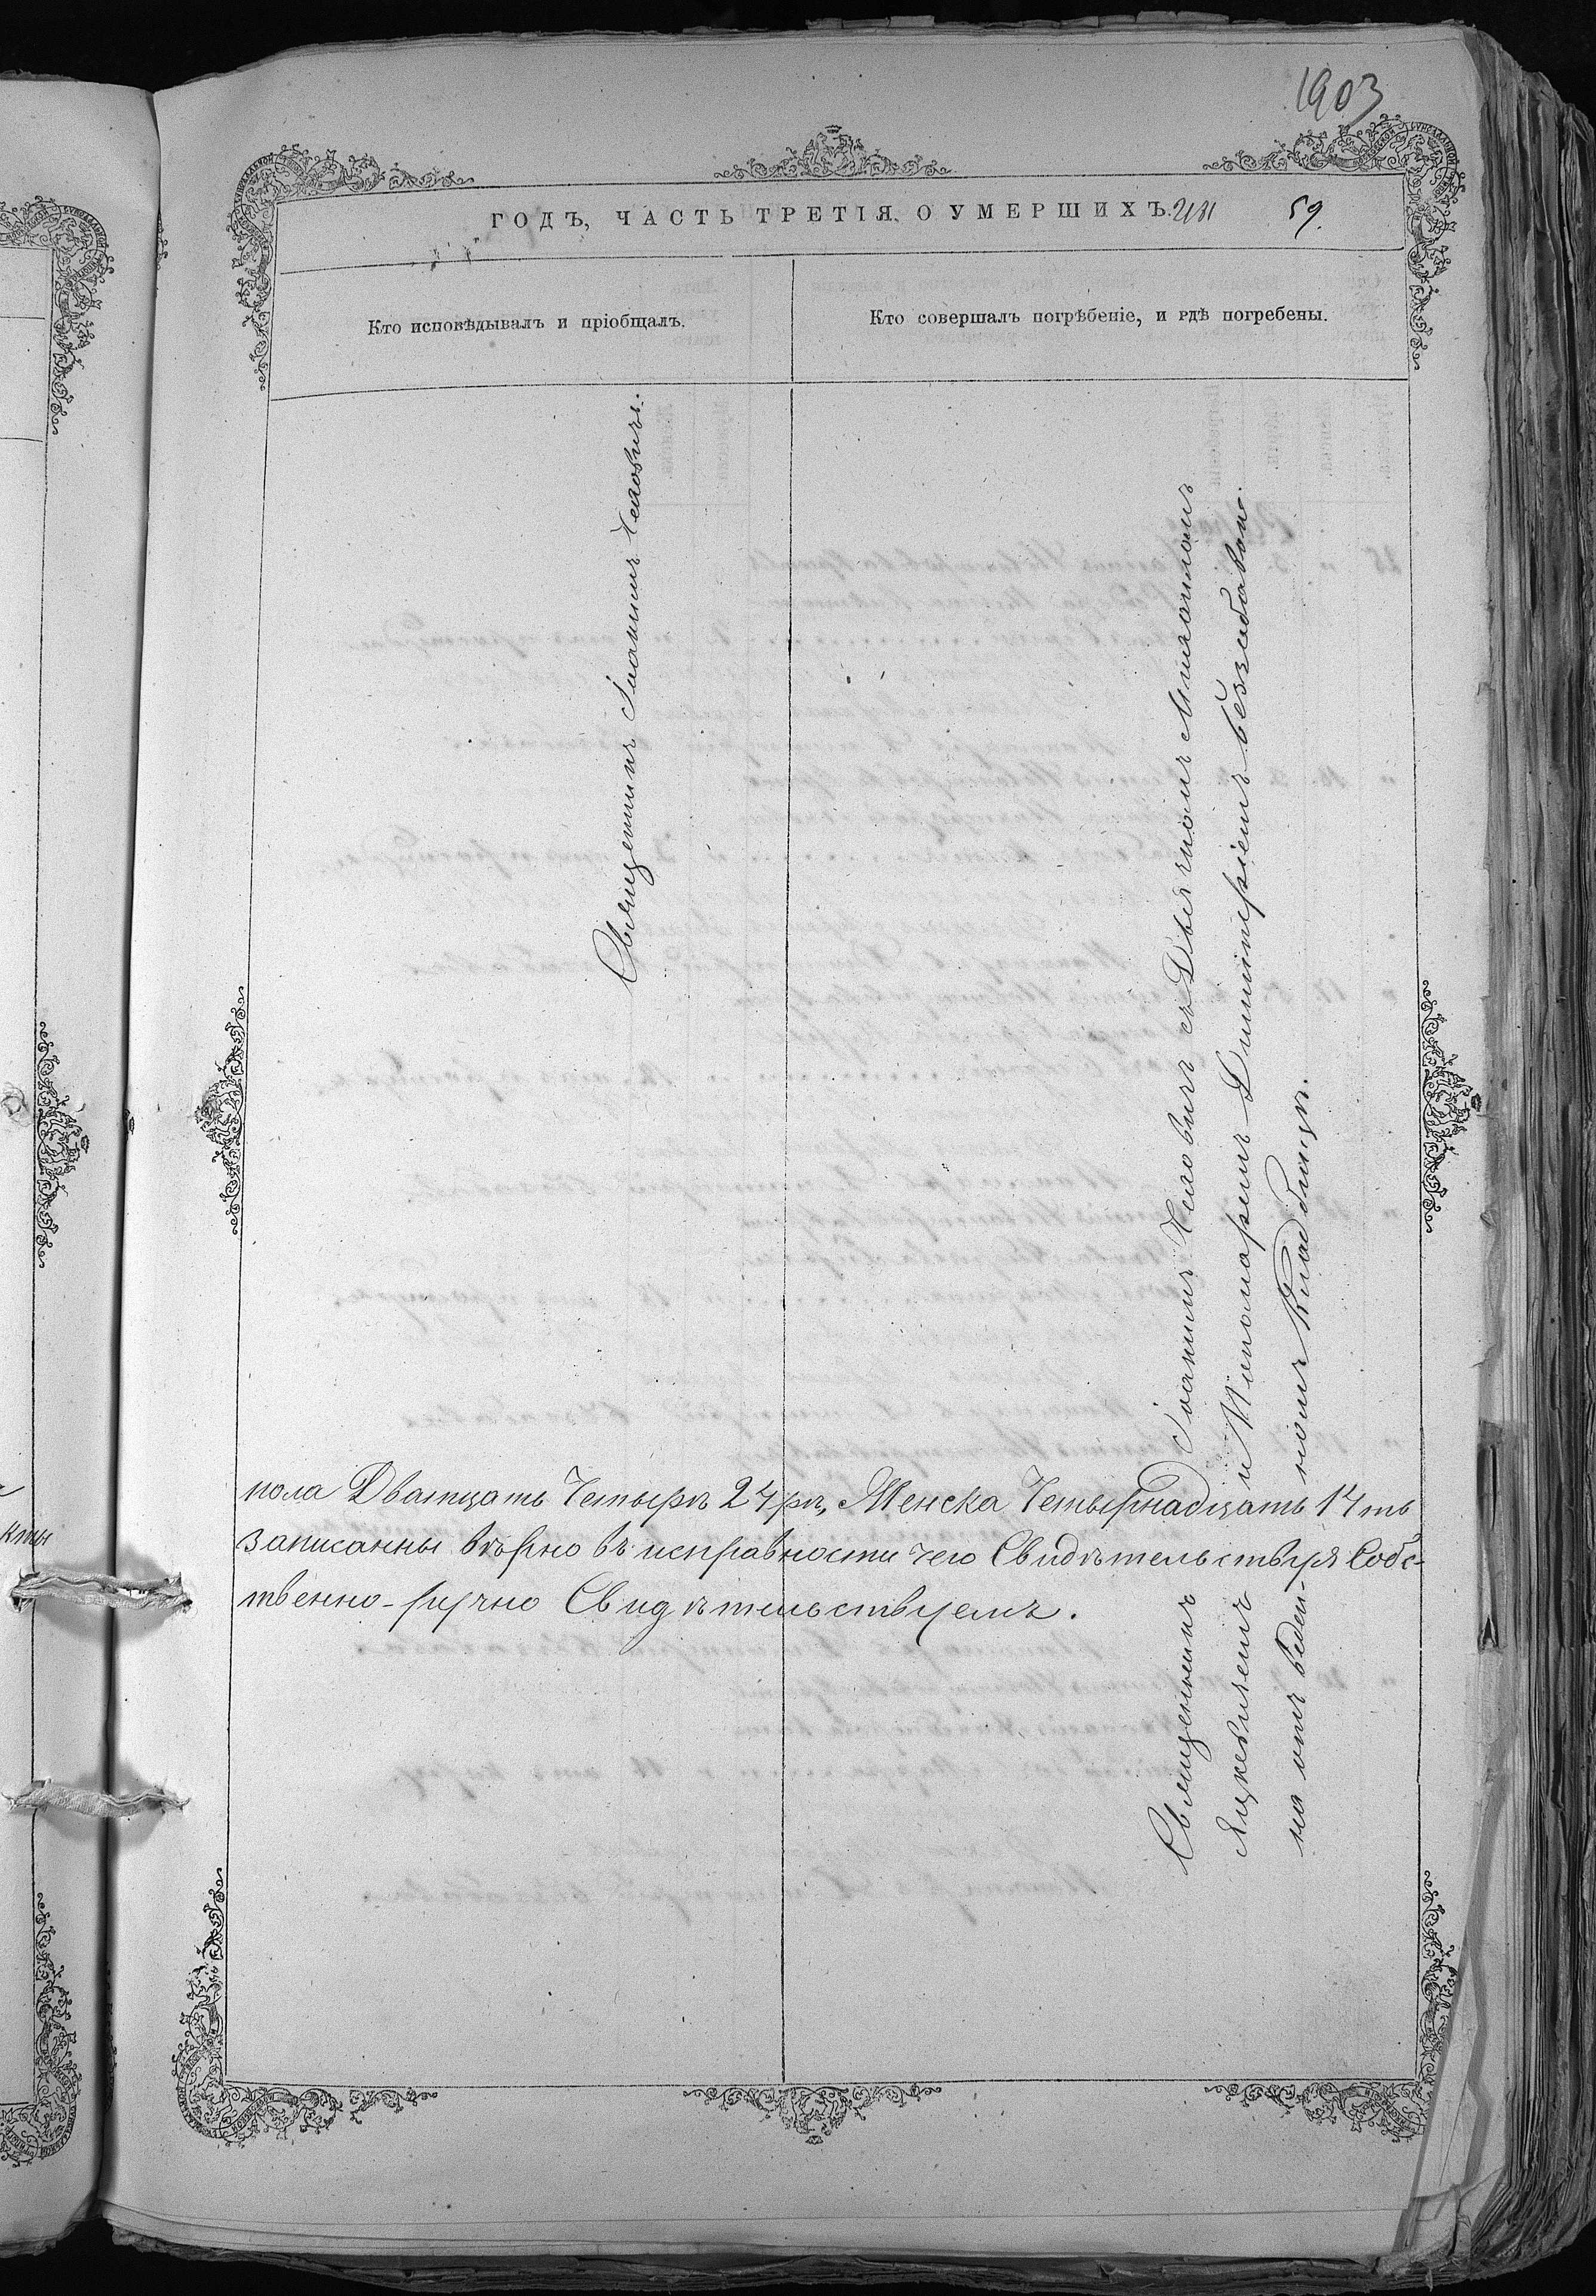 1903
ГОДЪ, ЧАСТЬ ТРЕТІЯ, О УМЕРШИХЪ.
59.
Кто исповѣдывалъ и пріобщалъ.
Кто совершалъ погрѣбеніе, и гдѣ погребены.
Священникъ Іоаннъ
Священникъ Іоаннъ съ Дьячкомъ
и Пономаремъ Димитріемъ Беззабавою.
на номъ Кладбищѣ.
пола Дватцать Четырѣ 24рѣ, Женска Четырнадцать 14ть
записанны вѣрно въ исправности чего Свидѣтельствуя Собс-
твенно-ручно Свидѣтельствуемъ.